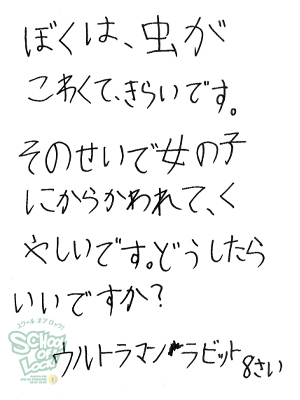 ぼくは、虫が
こわくて、きらいです。
そのせいで女の子
にからかわれて、く
やしいです。どうしたら
いいですか?
スクール オブ ロック!
SCHOOL
OF
LOCK!
ウルトラマンラビット 8さい